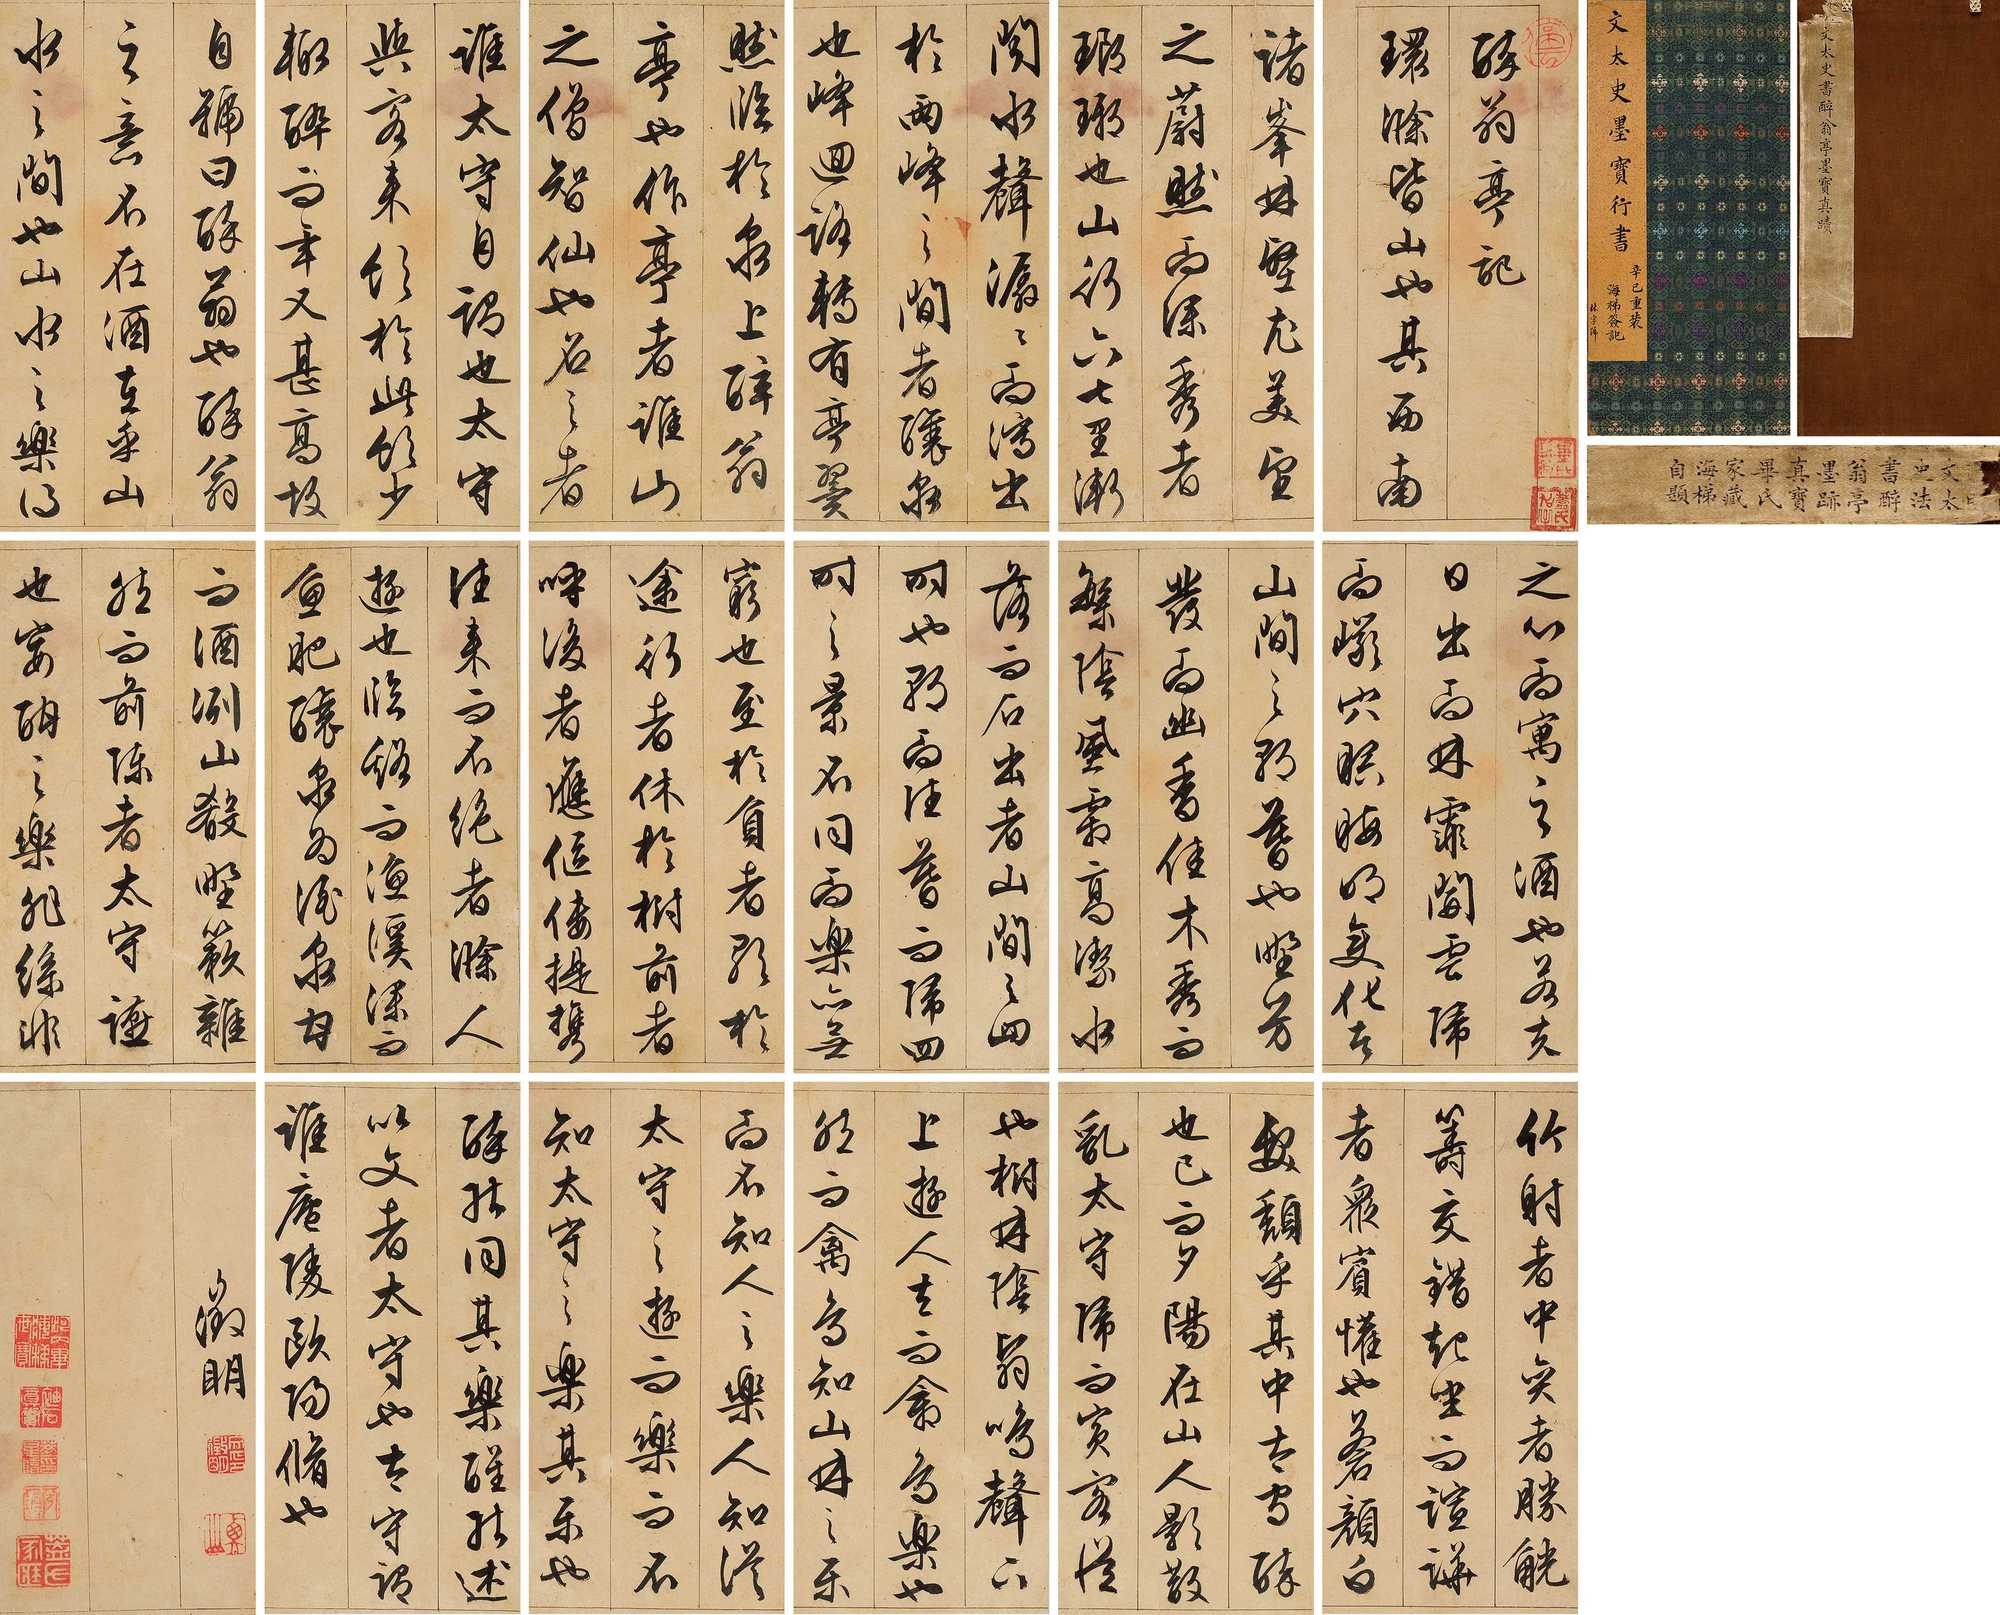 醉翁亭記
環滁皆山也其西南
諸峯林壑尤美望
之蔚然而深秀者
瑯琊也山行六七里漸
聞水聲潺〻而瀉出
於兩峰之間者釀泉
也峰迴路轉有亭翼
然臨於泉上醉翁
亭也作亭者誰山
之僧智仙也名之者
誰太守自謂也太守
與客來飲於此飲少
輒醉而年又甚高故
自號曰醉翁也醉翁
之意不在酒在乎山
水之間也山水之樂得
之心而寓之酒也若夫
日出而林霏開雲歸
而巖穴暝晦明變化者
山間之朝暮也野芳
發而幽香佳木秀而
繁陰風霜高潔水
落而石出者山間之四
時也朝而往暮而歸四
時之景不同而樂亦無
窮也至於負者歌於
途行者休於樹前者
呼後者應傴僂提攜
往來而不絕者滁人
遊也臨谿而漁溪深而
魚肥釀泉為酒泉甘
而酒洌山殽野蔌雜
然而前陳者太守讌
也宴酣之樂非絲非
竹射者中奕者勝觥
籌交錯起坐而諠譁
者衆賓懽也蒼顏白
髮頹乎其中太守醉
也已而夕陽在山人影散
亂太守歸而賓客從
也樹林陰翳鳴聲下
上遊人去而禽鳥樂也
然而禽鳥知山林之樂
而不知人之樂人知從
太守之遊而樂而不
知太守之樂其樂也
醉能同其樂醒能述
以文者太守也太守謂
誰廬陵歐陽脩也
徵明
文太史墨寶行書
辛巳重裝
海梯簽記
文太史書醉翁亭墨寶真蹟
文太
史法
書醉
翁亭
墨跡
真寶
畢氏
家藏
海梯
自題